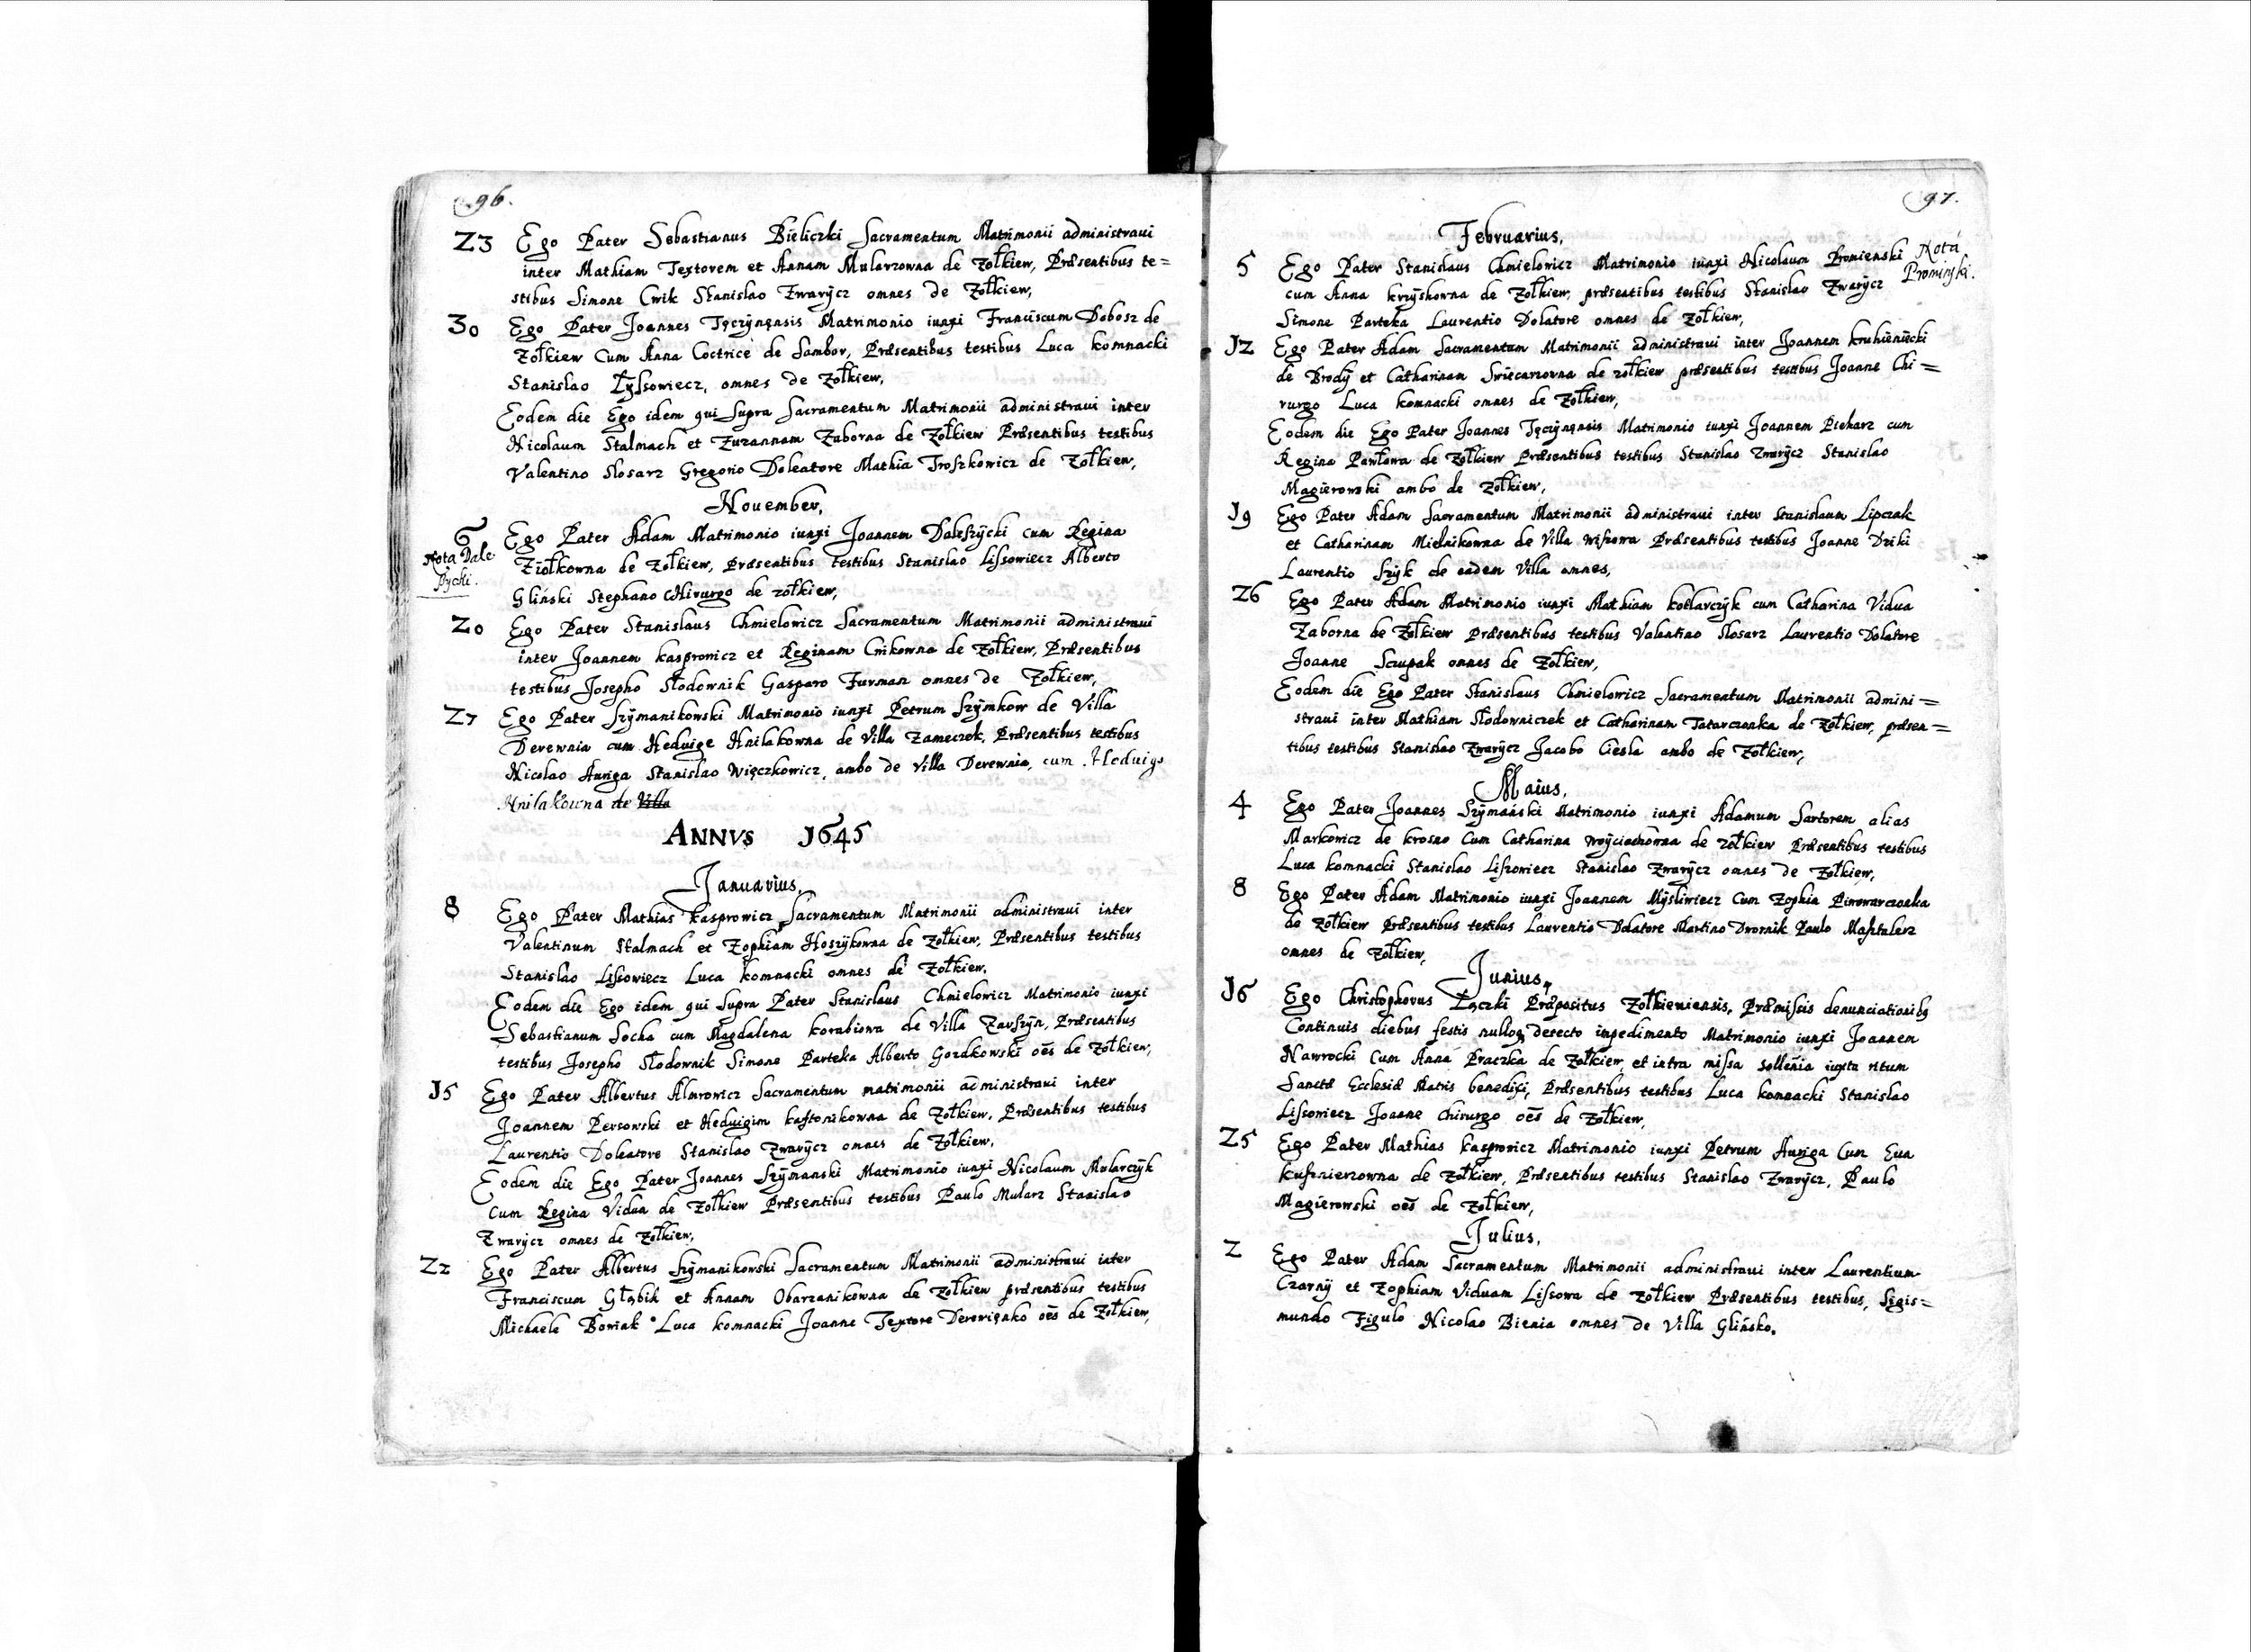 96.
23 Ego Pater Sebastianus Bieliczki Sacramentum Matrimonii administraui
inter Mathiam Textorem et Annam Mularzowna de Zołkiew, Præsentibus te=
stibus Simone Cwik Stanislao Zwarÿcz omnes de Zołkiew,
30 Ego Pater Joannes Tęczÿnęnsis Matrimonio iunxi Franciscum Dobosz de
Zołkiew Cum Anna Coctrice de Sambor, Præsentibus testibus Luca komnacki
Stanislao Lÿssowiecz, omnes de Zołkiew,
Eodem die Ego idem qui supra Sacramentum Matrimonii administraui inter
Nicolaum Stalmach et Zuzannam Zaborna de Zołkiew Præsentibus testibus
Valentino Slosarz Gregorio Doleatore Mathia Troszkowicz de Zołkiew,
November,
6 Ego Pater Adam Matrimonio iunxi Joannem Daleszÿcki cum Regina
Nota Dale
szycki.
Ziołkowna de Zołkiew, Præsentibus testibus Stanislao Lissowiecz Alberto
Gliński Stephano Chirurgo de zołkiew,
20 Ego Pater Stanislaus Chmielowicz Sacramentum Matrimonii administraui
inter Joannem kasprowicz et Reginam Cwikowna de Zołkiew, Præsentibus
testibus Josepho Słodownik Gasparo Furman omnes de Zołkiew,
27 Ego Pater Szÿmanikowski Matrimonio iunxi Petrum Szÿmkow de Villa
Derewnia cum Hedvige Hnilakowna de Villa Zameczek, Præsentibus testibus
Nicolao Auriga Stanislao Więczkowicz, ambo de Villa Derewnia, cum Heduige
Hnilakowna de Villa
ANNVS 1645
Januarius,
8 Ego Pater Mathias kasprowicz Sacramentum Matrimonii administraui inter
Valentinum Stalmach et Zophiam Hoszÿkowna de Zołkiew, Præsentibus testibus
Stanislao Lissowiecz Luca komnacki omnes de Zołkiew,
Eodem die Ego idem qui supra Pater Stanislaus Chmielowicz Matrimonio iunxi
Sebastianum Socha cum Magdalena korabiowa de Villa Zarszÿn, Præsentibus
testibus Josepho Słodownik Simone Parteka Alberto Gozdkowski oēs de Zołkiew,
15 Ego Pater Albertus Almrowicz Sacramentum matrimonii administraui inter
Joannem Persowski et Heduigim kasztonikowna de Zołkiew, Præsentibus testibus
Laurentio Doleatore Stanislao Zwarÿcz omnes de Zołkiew,
Eodem die Ego Pater Joannes Szÿmanski Matrimonio iunxi Nicolaum Mularczÿk
Cum Regina Vidua de Zołkiew Præsentibus testibus Paulo Mularz Stanislao
Zwarÿcz omnes de Zołkiew,
22 Ego Pater Albertus Szÿmanikowski Sacramentum Matrimonii administraui inter
Franciscum Głąbik et Annam Obarzanikowna de Zołkiew præsentibus testibus
Michaele Bowiak Luca komnacki Joanne Textore Derewięnko oēs de Zołkiew,
97.
Februarius,
5 Ego Pater Stanislaus Chmielowicz Matrimonio iunxi Nicolaum Promienski
Nota
Promiński.
cum Anna krzÿskowna de Zołkiew, præsentibus testibus Stanislao Zwarÿcz
Simone Parteka Laurentio Dolatore omnes de Zołkiew,
12 Ego Pater Adam Sacramentum Matrimonii administraui inter Joannem kruhieniecki
de Brodÿ et Catharinam Swiecarzowna de zołkiew præsentibus testibus Joanne Chi=
rurgo Luca komnacki omnes de Zołkiew,
Eodem die Ego Pater Joannes Tęczÿnęnsis Matrimonio iunxi Joannem Piekarz cum
Regina Pawłowa de Zołkiew Præsentibus testibus Stanislao Zwarÿcz Stanislao
Magierowski ambo de Zołkiew,
19 Ego Pater Adam Sacramentum Matrimonii administraui inter Stanislaum Lipczak
et Catharinam Mielnikowna de Villa Wiszowa Præsentibus testibus Joanne Dziki
Laurentio Szÿk de eadem Villa omnes,
26 Ego Pater Adam Matrimonio iunxi Mathiam kotlarczÿk cum Catharina Vidua
Zaborna de Zołkiew Præsentibus testibus Valentino Slosarz Laurentio Dolatore
Joanne Sczupak omnes de Zołkiew,
Eodem die Ego Pater Stanislaus Chmielowicz Sacramentum Matrimonii admini=
straui inter Mathiam Słodowniczek et Catharinam Tatarczonka de Zołkiew, præsen=
tibus testibus Stanislao Zwarÿcz Jacobo Ciesla ambo de Zołkiew,
Maius,
4 Ego Pater Joannes Szÿmański Matrimonio iunxi Adamum Sartorem alias
Markowicz de krosno Cum Catharina Woÿciechowna de zołkiew Præsentibus testibus
Luca komnacki Stanislao Liszowiecz Stanislao Zwarÿcz omnes de Zołkiew,
8 Ego Pater Adam Matrimonio iunxi Joannem Mÿsliwiecz Cum Zophia Piwowarczonka
de Zołkiew Præsentibus testibus Laurentio Dolatore Martino Dwornik Paulo Masztalerz
omnes de Zołkiew,
Junius,
16 Ego Christophorus Łączki Præpositus Zołkieuiensis, Præmissis denunciationibq
Continuis diebus festis nulloq detecto impedimento Matrimonio iunxi Joannem
Nawrocki Cum Anna Praczka de Zołkiew et intra missa sollēnia iuxta ritum
Sanctæ Ecclesiæ Matris benedixi, Præsentibus testibus Luca komnacki Stanislao
Lissowiecz Joanne Chirurgo oēs de Zołkiew,
25 Ego Pater Mathias kasprowicz Matrimonio iunxi Petrum Auriga Cum Eua
kusznierzowna de Zołkiew, Præsentibus testibus Stanislao Zwarÿcz, Paulo
Magierowski oēs de Zołkiew,
Julius,
2 Ego Pater Adam Sacramentum Matrimonii administraui inter Laurentium
Czarnÿ et Zophiam Viduam Lissowa de Zołkiew Præsentibus testibus, Sigis=
mundo Figulo Nicolao Bienia omnes de Villa Glińsko.